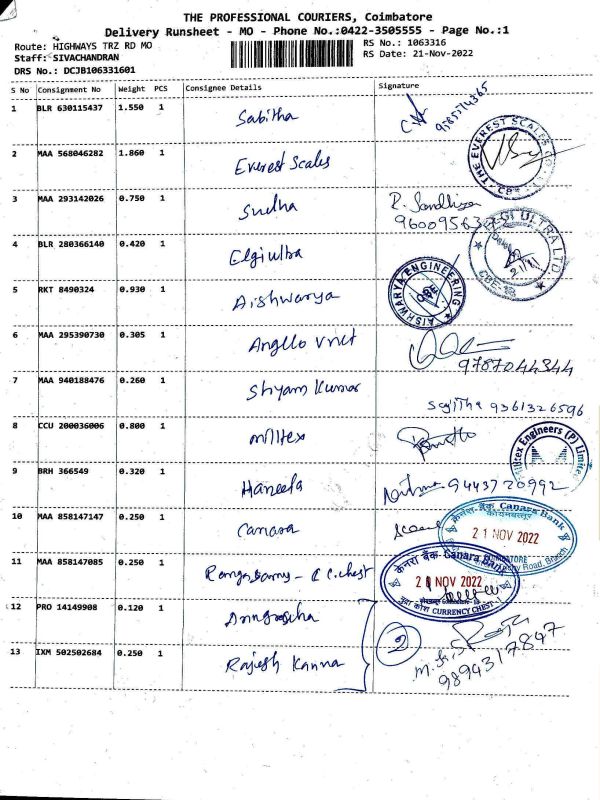 THE PROFESSIONAL COURIERS, Coimbatore
Delivery Runsheet - MO - Phone No.:0422-3505555 - Page No.:1
Route: HIGHWAYS TRZ RD MO RS No.: 1063316
Staff: SIVACHANDRAN RS Date: 21-Nov-2022
DRS No.: DCJB106331601
S No Consignment No Weight PCS Consignee Details Signature
1 BLR 630115437 1.550 1 Sabitha
2 MAA 568046282 1.860 1 Everest Scales THE EVEREST SCALES CO.
3 MAA 293142026 0.750 1 Sudha R. Sandhiya
4 BLR 280366140 0.420 1 Elgi ultra ELGI ULTRA LTD CBE 21/11
5 RKT 8490324 0.930 1 Aishwarya AISHWARYA ENGINEERING CBE
6 MAA 295390730 0.305 1 Angllo vnct 9787044344
7 MAA 940188476 0.260 1 Shyam Kumar Sajitha 9361326596
8 CCU 200036006 0.800 1 milltex Milltex Engineers (P) Limited
9 BRH 366549 0.320 1 Haneefa 9443720992
10 MAA 858147147 0.250 1 Canara केनरा बैंक Canara Bank 21 NOV 2022 Road, Branch
11 MAA 858147085 0.250 1 Rangasamy - C.chest केनरा बैंक Canara Bank 21 NOV 2022 CURRENCY CHEST
12 PRO 14149908 0.120 1 2
13 IXM 502502684 0.250 1 Rajesh Kanna 9894317847